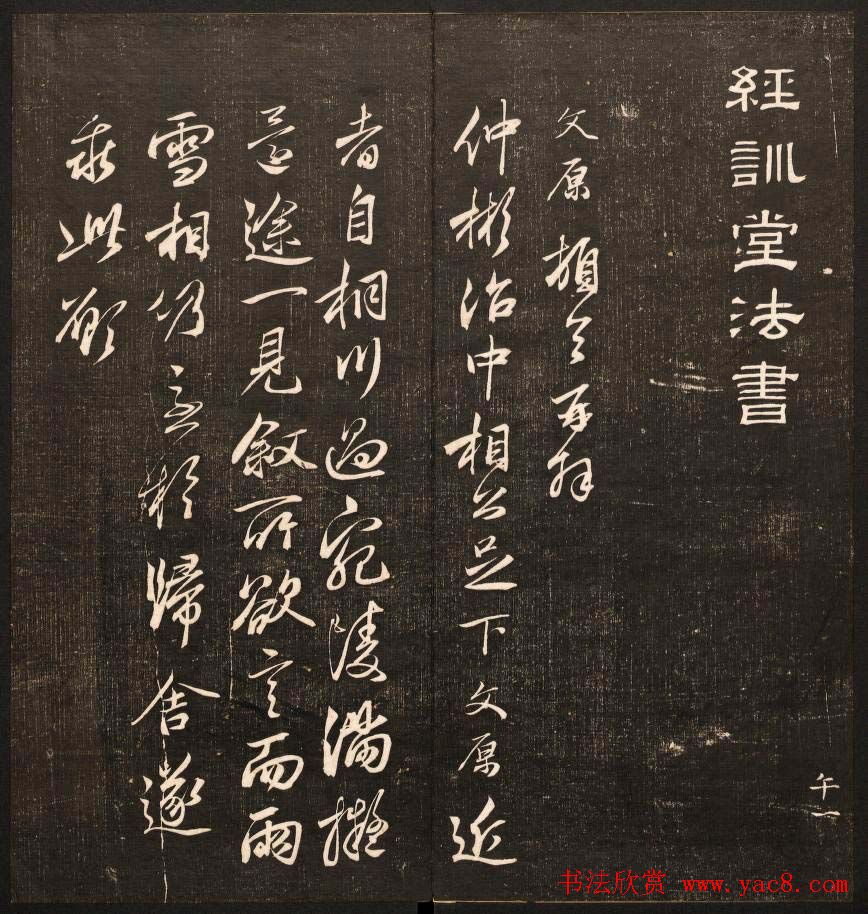 經訓堂法書
文原頓首再拜
仲彬治中相公足下文原近
者自桐川過宛陵滿擬
途一見敘所欲言而雨
雪相仍亟歸舍遂
乖此願
午一
书法欣赏 www.yac8.com